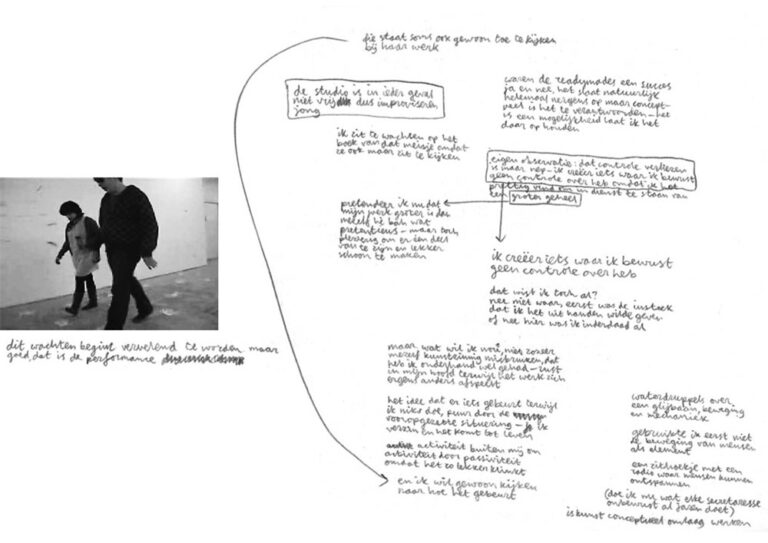 die staat soms ook gewoon toe te kijken
bij haar werk
de studio is in ieder geval
niet vrij dus improviseren
jong
waren de readymades een succes
ja en nee, het slaat natuurlijk
helemaal nergens op maar concept-
ueel is het te verantwoorden – het
is een mogelijkheid laat ik het
daar op houden
ik zit te wachten op het
boek van dat meisje omdat
ze ook maar zit te kijken
eigen observatie: dat controle verliezen
is maar nep – ik creëer iets waar ik bewust
geen controle over heb omdat ik het
prettig vind om in dienst te staan van
een groter geheel
pretendeer ik nu dat
mijn werk groter is dan
mezelf hè bah wat
pretentieus – maar toch
plezierig om er een deel
van te zijn en lekker
schoon te maken
ik creëer iets waar ik bewust
geen controle over heb
dat wist ik toch al?
nee niet waar, eerst was de insteek
dat ik het uit handen wilde geven
of nee hier was ik inderdaad al
dit wachten begint vervelend te worden maar
goed, dat is de performance
maar, wat wil ik nou, niet zozeer
mezelf kunstzinnig misbruiken, dat
heb ik onderhand wel gehad – rust
in mijn hoofd terwijl het werk zich
ergens anders afspeelt
het idee dat er iets gebeurt terwijl
ik niks doe, puur door de
vooropgezette situering – ik
verzin en het komt tot leven
activiteit buiten mij om
activiteit door passiviteit
omdat het zo lekker klinkt
en ik wil gewoon kijken
naar hoe het gebeurt
waterdruppels over
een glijbaan, beweging
en mechaniek
gebruikte ik eerst niet
de beweging van mensen
als element
een zithoekje met een
radio waar mensen kunnen
ontspannen
(dat ik nu wat elke secretaresse
onbewust al jaren doet)
is kunst conceptueel omlaag werken